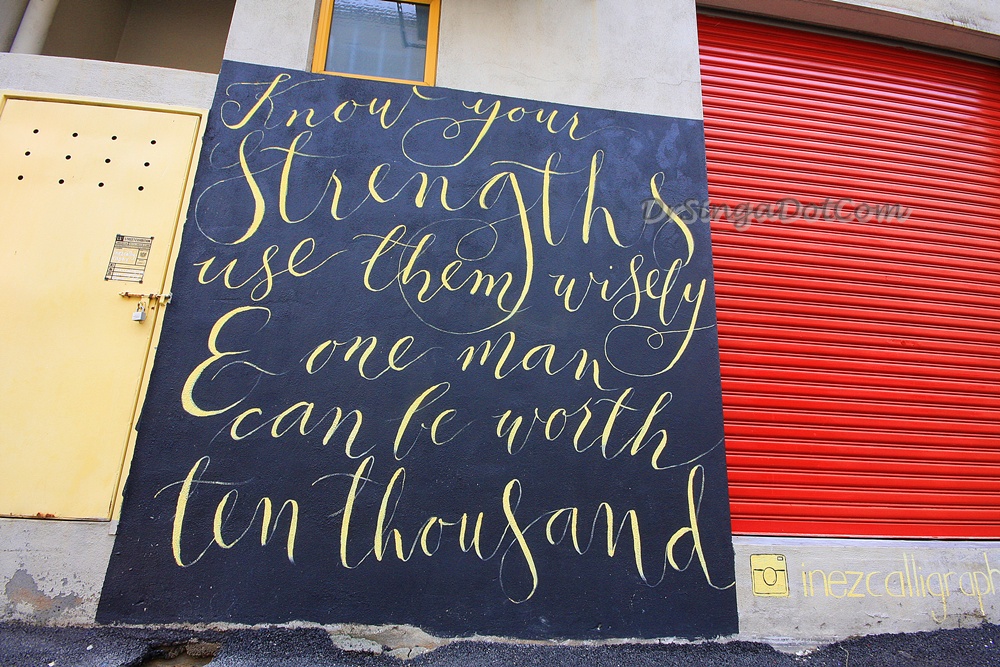 Know your
Strengths
use them wisely
& one man
can be worth
ten thousand
DrSingaDotCom
inezcalligraph